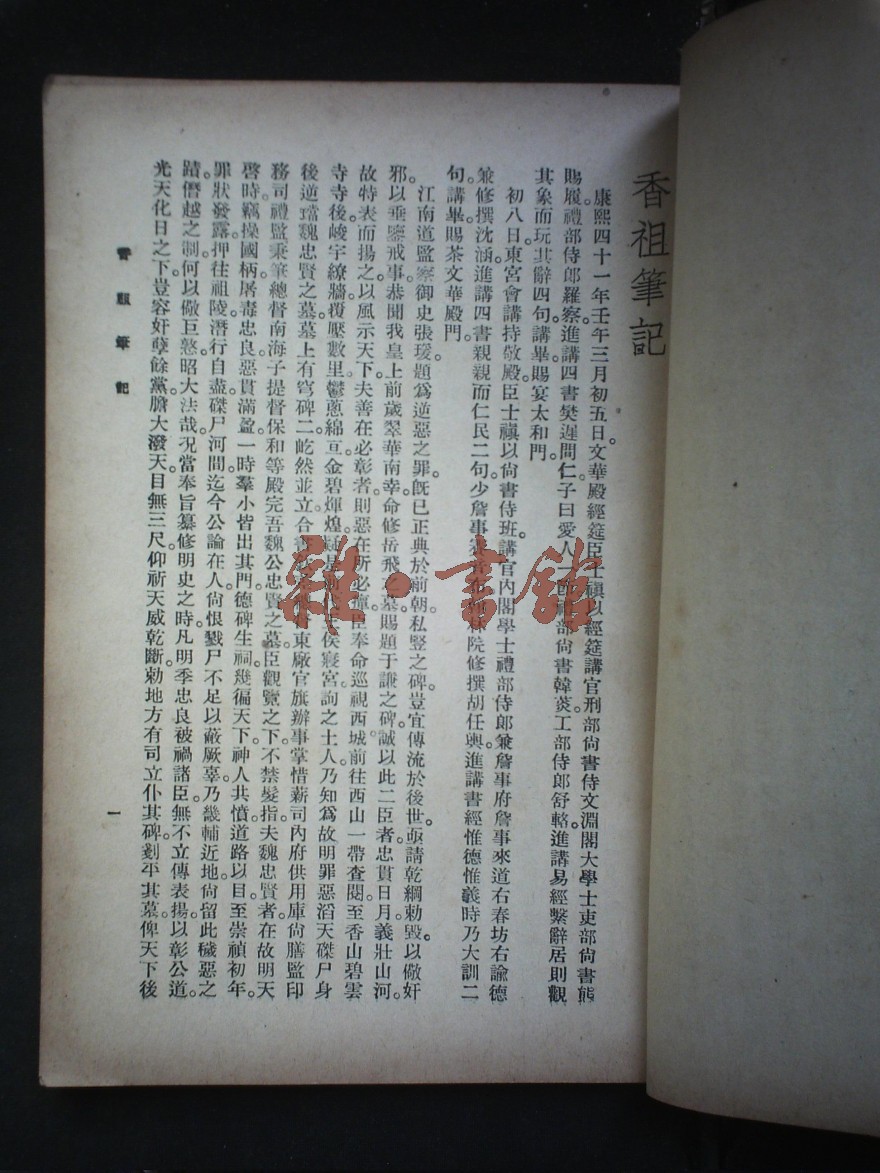 香祖筆記
康熙四十一年壬年三月初五日。文華殿經筵臣士禛以經筵講官刑部尙書侍文淵閣大學士吏部尙書熊
賜履。禮部侍郎羅察。進講四書樊遲問仁子曰愛人二節部尙書韓菼。工部侍郎舒輅。進講易經繫辭居則觀
其象而玩其辭四句。講畢。賜宴太和門。
初八日。東宮會講持敬殿。臣士禛以尙書侍班。講官內閣學士禮部侍郎兼詹事府詹事來道。右春坊右諭德
兼修撰沈涵。進講四書親親而仁民二句。少詹事林院修撰胡任輿。進講書經惟德惟義時乃大訓二
句。講畢。賜茶文華殿門。
江南道監察御史張瑗。題爲逆惡之罪。旣已正典於前朝。私豎之碑。豈宜傳流於後世。亟請乾綱勅毀。以儆奸
邪。以垂鑒戒事。恭聞我皇上前歲翠華南幸。命修岳飛之墓。賜題于謙之碑。誠以此二臣者。忠貫日月。義壯山河。
故特表而揚之。以風示天下。夫善在必彰者。則惡在所必癉。臣奉命巡視西城。前往西山一帶查閱。至香山碧雲
寺。寺後峻宇繚牆。覆壓數里。鬱蔥綿亙。金碧輝煌。疑是侯寢宮。詢之土人。乃知爲故明罪惡滔天磔尸身
後逆璫魏忠賢之墓。墓上有穹碑二。屹然並立。合書東廠官旗辦事掌惜薪司內府供用庫尙膳監印
務司禮監秉筆總督南海子提督保和等殿完吾魏公忠賢之墓。臣觀覽之下。不禁髮指。夫魏忠賢者。在故明天
啓時。竊操國柄。屠毒忠良。惡貫滿盈。一時羣小皆出其門。德碑生祠。幾徧天下。神人共憤。道路以目。至崇禎初年。
罪狀發露。押往祖陵。潛行自盡。磔尸河間。迄今公論在人。尙恨戮尸不足以蔽厥辜。乃畿輔近地。尙留此穢惡之
蹟。僭越之制。何以儆巨憝。昭大法哉。况當奉旨纂修明史之時。凡明季忠良被禍諸臣。無不立傳表揚。以彰公道。
光天化日之下。豈容奸孽餘黨。膽大潑天。目無三尺。仰祈天威乾斷。勅地方有司。立仆其碑。剷平其墓。俾天下後
香祖筆記
一
雜·書館